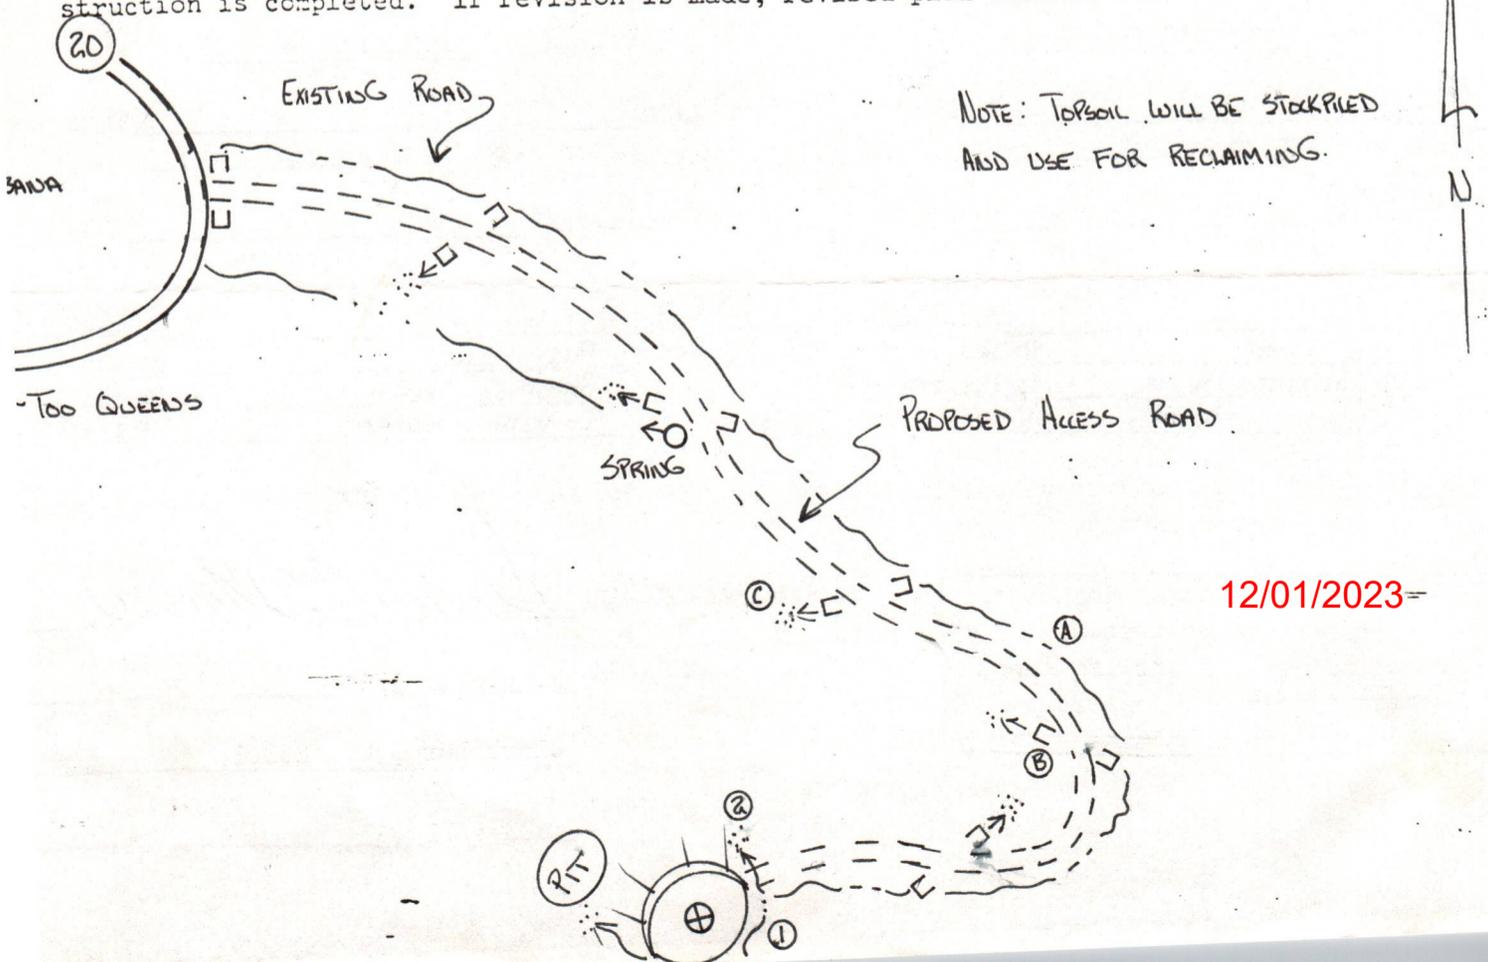 struction is completed. If revision is made, revised
20
EXISTING ROAD
NOTE: TOPSOIL WILL BE STOCKPILED
AND USE FOR RECLAIMING.
N
TOO QUEENS
PROPOSED ACCESS ROAD
SPRING
12/01/2023
C
A
B
2
PIT
1